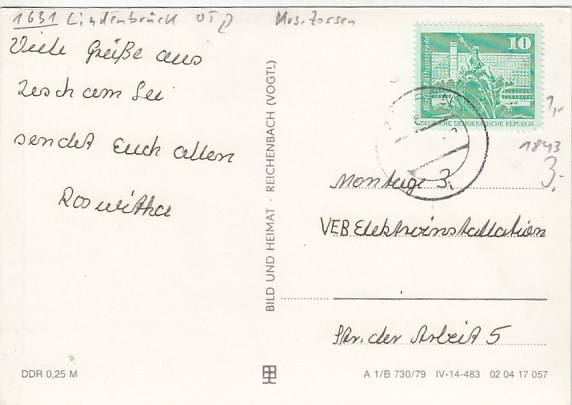 1631 Lindenbrück OT Krs. Zossen
Viele Grüße aus
Zesch am See
sendet Euch allen
Roswitha
BILD UND HEIMAT · REICHENBACH (VOGTL)
10
Berlin, Rathausstraße
DEUTSCHE DEMOKRATISCHE REPUBLIK
1,-
1843
3,-
Montage 3
VEB Elektroinstallation
Str. der Arbeit 5
DDR 0,25 M
A 1/B 730/79 IV-14-483 02 04 17 057